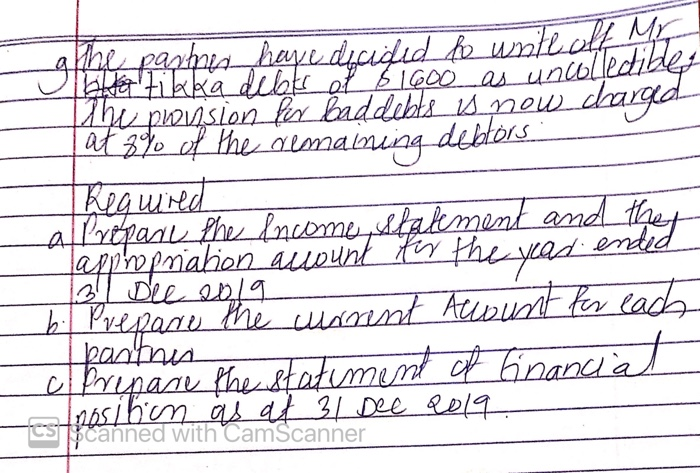 g The partner have decided to write off Mr
tikka debts of $1600 as uncolledibles
The provision for bad debts is now charged
at 8% of the remaining debtors.
Required
a Prepare the Income statement and the
appropriation account for the year ended
31 Dec 2019
b. Prepare the current Account for each
partner
c Prepare the statement of financial
position as at 31 Dec 2019.
CS Scanned with CamScanner